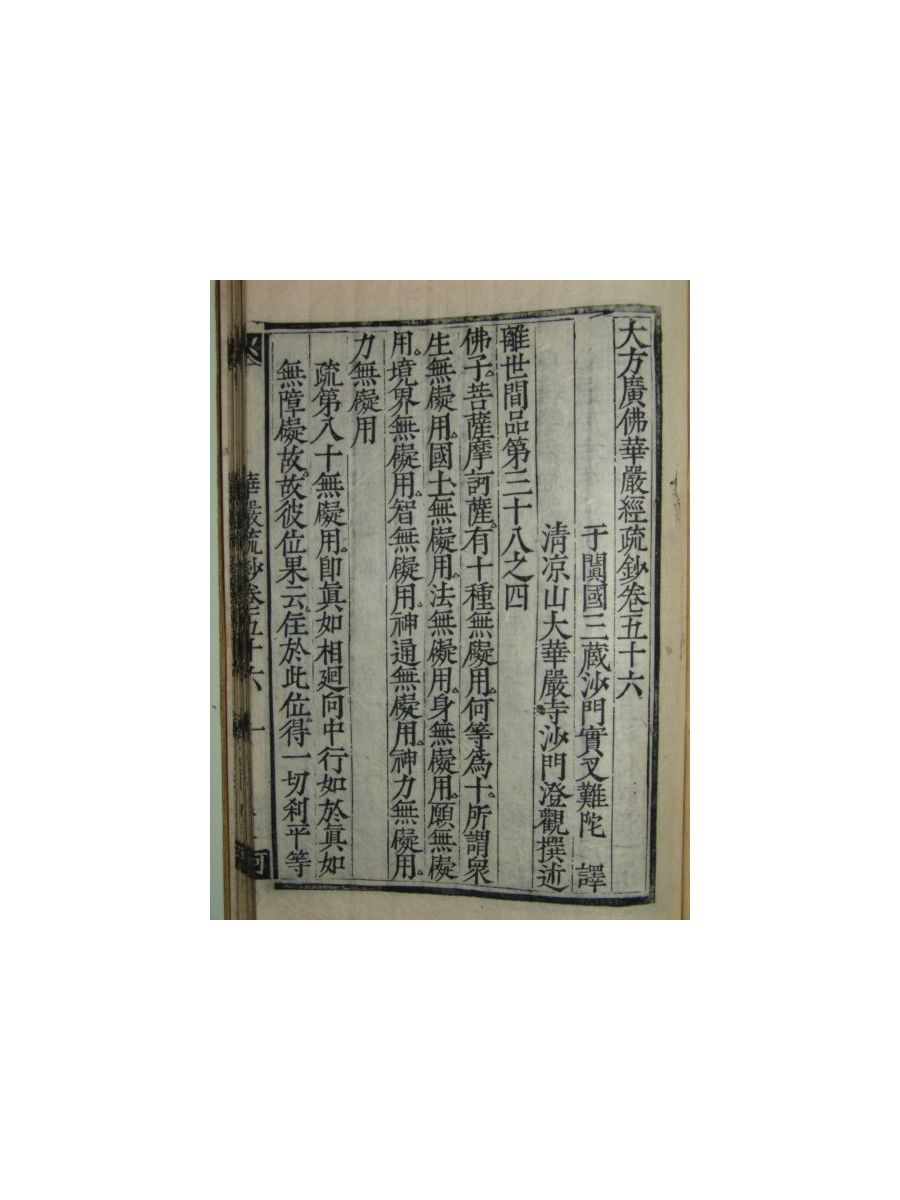 大方廣佛華嚴經疏鈔卷五十六
于闐國三藏沙門實叉難陀 譯
清凉山大華嚴寺沙門澄觀撰述
離世間品第三十八之四
佛子。菩薩摩訶薩。有十種無礙用。何等爲十。所謂衆
生無礙用。國土無礙用。法無礙用。身無礙用。願無礙
用。境界無礙用。智無礙用。神通無礙用。神力無礙用。
力無礙用
疏第入十無礙用。即眞如相迴向中行如於眞如
無障礙故。故彼位果云。住於此位。得一切刹平等
華嚴疏鈔卷五十六 一